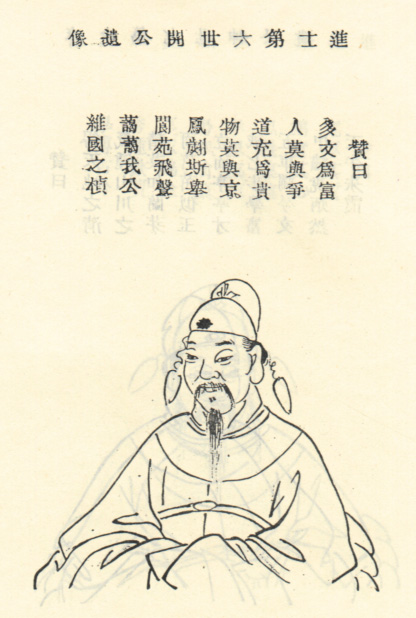 進士第六世開公遺像
贊曰
多文爲富
人莫與爭
道充爲貴
物莫與京
鳳翽斯舉
閬苑飛聲
藹藹我公
維國之楨